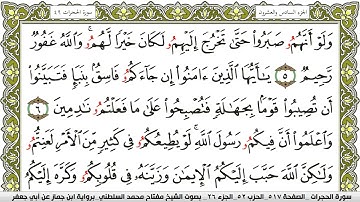 الجزء السادس والعشرون
سورة الحجرات ٤٩
وَلَوْ أَنَّهُمُۥ صَبَرُواْ حَتَّىٰ تَخْرُجَ إِلَيْهِمُۥ لَكَانَ خَيْرًا لَّهُمُۥۚ وَاللَّهُ غَفُورٌ
رَّحِيمٌ ٥ يَٰٓأَيُّهَا الَّذِينَ ءَامَنُواْ إِن جَآءَكُمُۥ فَاسِقُۢ بِنَبَإٍ فَتَبَيَّنُوٓاْ
أَن تُصِيبُواْ قَوْمَۢا بِجَهَٰلَةٍ فَتُصْبِحُواْ عَلَىٰ مَا فَعَلْتُمُۥ نَٰدِمِينَ ٦
وَاعْلَمُوٓاْ أَنَّ فِيكُمُۥ رَسُولَ اللَّهِۚ لَوْ يُطِيعُكُمُۥ فِي كَثِيرٍ مِّنَ الْأَمْرِ لَعَنِتُّمُۥ
وَلَٰكِنَّ اللَّهَ حَبَّبَ إِلَيْكُمُۥ الْإِيمَٰنَ وَزَيَّنَهُۥ فِي قُلُوبِكُمُۥ وَكَرَّهَ إِلَيْكُمُ
سورة الحجرات . الصفحة ٥١٧ . الحزب ٥٢ . الجزء ٢٦ . بصوت الشيخ مفتاح محمد السلطني . برواية ابن جماز عن أبي جعفر